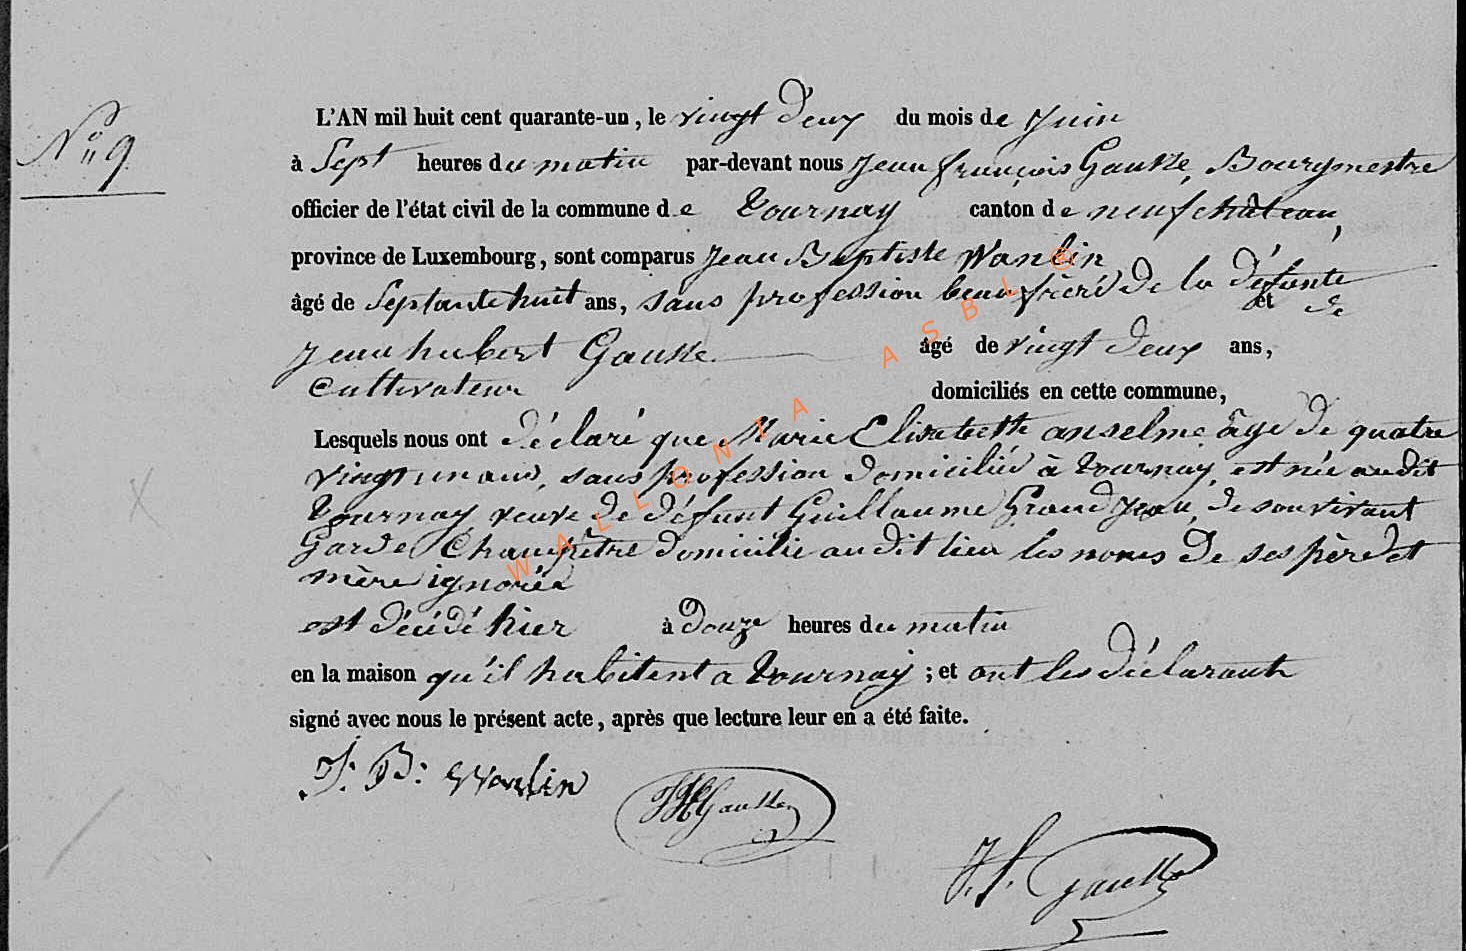 N° 9
L'AN mil huit cent quarante-un, le vingt deux du mois de Juin
à Sept heures du matin par-devant nous Jean françois Gausse, Bourgmestre
officier de l'état civil de la commune de Tournay canton de neufchâteau,
province de Luxembourg, sont comparus Jean Baptiste Wanlin
âgé de Septante huit ans, sans profession beau frère de la défunte et de
Jean hubert Gausse âgé de vingt deux ans,
Cultivateur domiciliés en cette commune,
Lesquels nous ont déclaré que Marie Elisabeth anselme âgé de quatre
vingt un ans, sans profession domiciliée à Tournay, est née au dit
Tournay, veuve de défunt Guillaume Grand Jean, de son vivant
Garde Champêtre domicilié au dit lieu les noms de ses père et
mère ignorés
est décédé hier à Douze heures du matin
en la maison qu'il habitent a Tournay ; et ont les déclarants
signé avec nous le présent acte, après que lecture leur en a été faite.
J: B: Wanlin
JHGausse
J. f. Gausse
WALLONIA ASBL ®